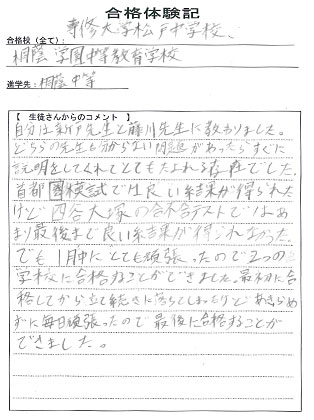 合格体験記
専修大学松戸中学校、
合格校(全て):
桐蔭学園中等教育学校
進学先: 桐蔭中等
【 生徒さんからのコメント 】
自分は 先生と藤川先生に教わりました。
どちらの先生も分からない問題があったらすぐに
説明をしてくれてとてもたよれる存在でした。
首都圏模試では良い結果が得られた
けど四谷大塚の合不合テストではあ
まり最後まで良い結果が得られなかった。
でも1月中にとても頑張ったので2つの
学校に合格することができました。最初に合
格してから立て続きに落ちてしまったけどあきらめ
ずに毎日頑張ったので最後に合格することが
できました。